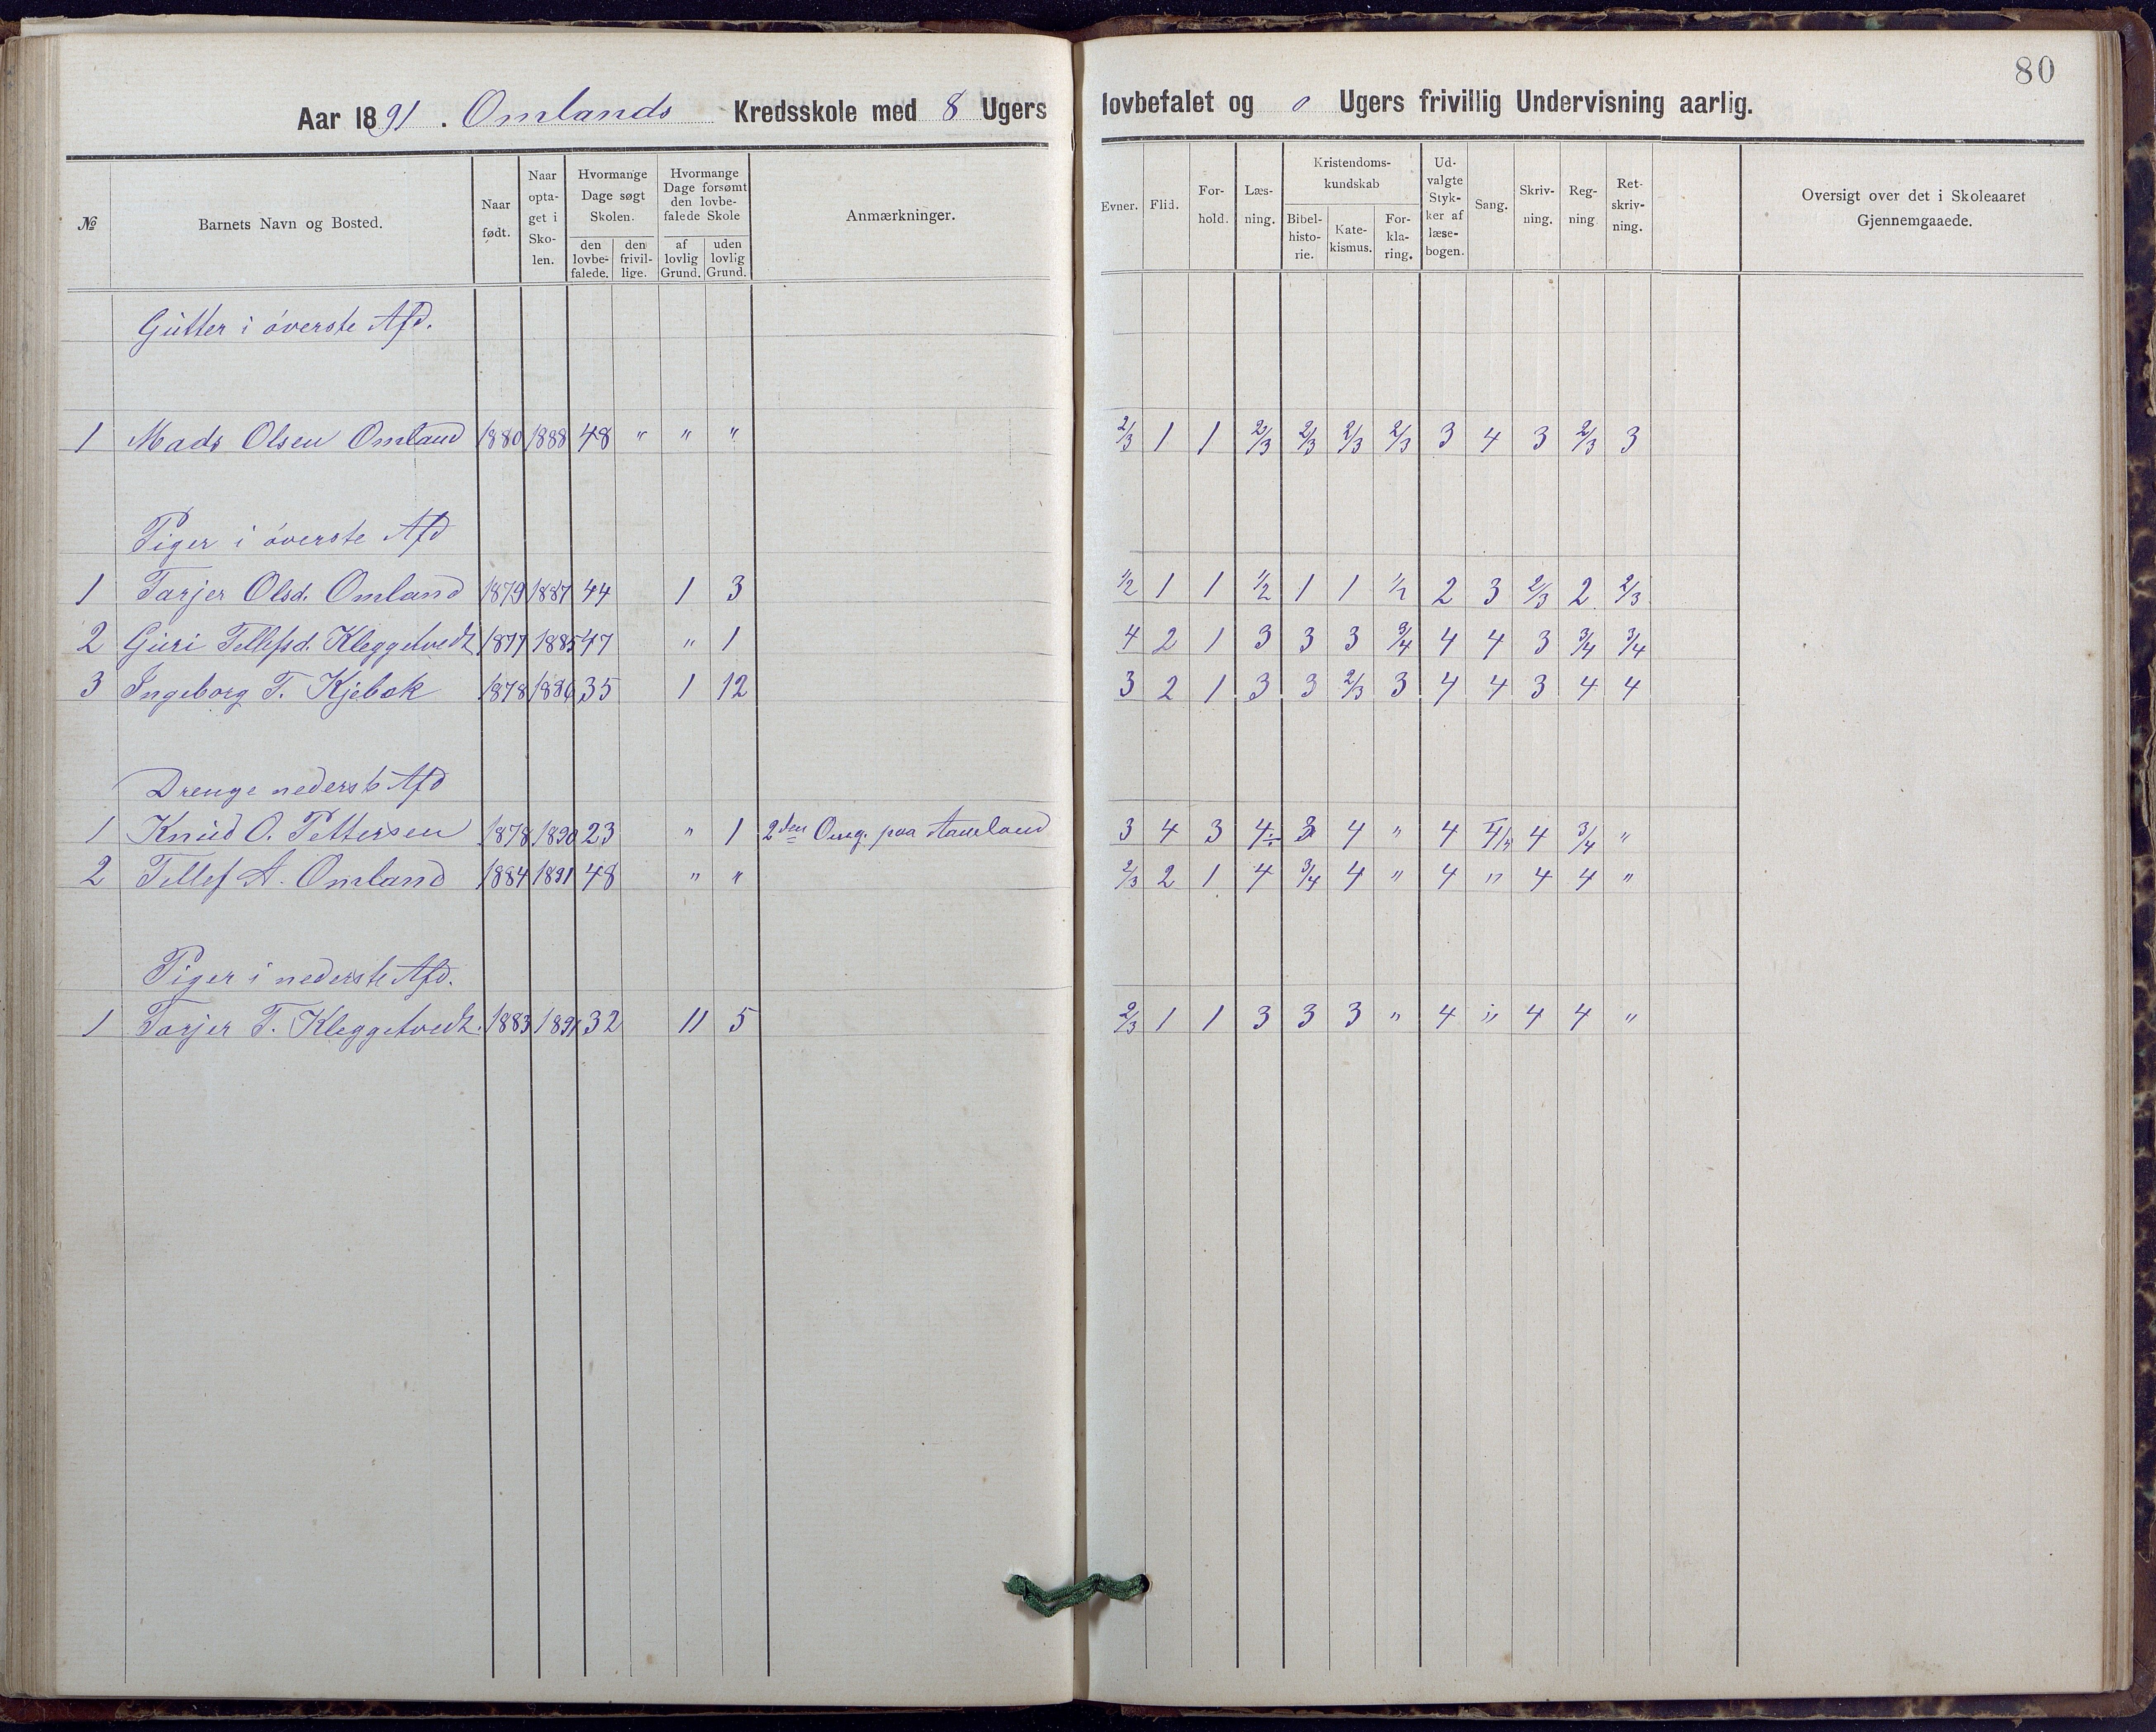 80
Aar 1891. Omlands Kredsskole med 8 Ugers lovbefalet og 0 Ugers frivillig Undervisning aarlig.
№ Barnets Navn og Bosted. Naar født. Naar optaget i Skolen. Hvormange Dage søgt Skolen. den lovbefalede. den frivillige. Hvormange Dage forsømt den lovbefalede Skole af lovlig Grund. uden lovlig Grund. Anmærkninger. Evner. Flid. Forhold. Læsning. Kristendomskundskab Bibelhistorie. Katekismus. Forklaring. Udvalgte Stykker af læsebogen. Sang. Skrivning. Regning Retskrivning. Oversigt over det i Skoleaaret Gjennemgaaede.
Gutter i överste Afd.
1 Mads Olsen Omland 1880 1888 48 " " " 2/3 1 1 2/3 2/3 2/3 2/3 3 4 3 2/3 3
Piger i överste Afd
1 Tarjer Olsd. Omland 1879 1887 44 1 3 1/2 1 1 1/2 1 1 1/2 2 3 2/3 2 2/3
2 Guri Tellefsd. Kleggetvedt 1877 1885 47 " 1 4 2 1 3 3 3 3/4 4 4 3 3/4 3/4
3 Ingeborg T. Kjebok 1878 1886 35 1 12 3 2 1 3 3 2/3 3 4 4 3 4 4
Drenge nederste Afd
1 Knud O. Pettersen 1878 1890 23 " 1 2den Omg. paa Aamland 3 4 3 4÷ 3 4 " 4 4 3/4 "
2 Tellef A. Omland 1884 1891 48 " " 2/3 2 1 4 3/4 4 " 4 " 4 4 "
Piger i nederste Afd.
1 Tarjer T. Kleggetvedt. 1883 1891 32 11 5 2/3 1 1 3 3 3 " 4 " 4 4 "